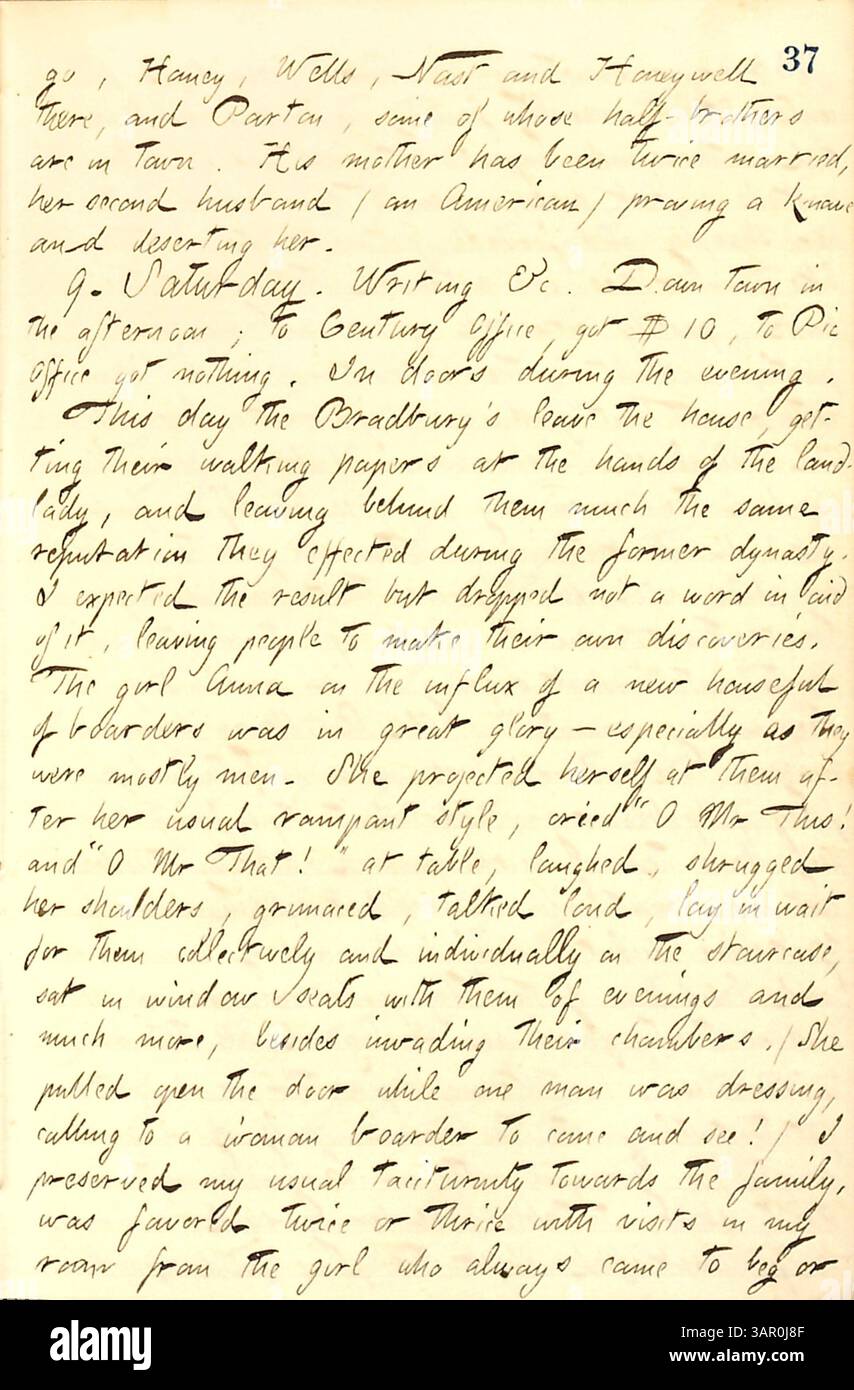 37
go, Haney, Wells, Nast and Honeywell
there, and Parton, some of whose half-brothers
are in town. His mother has been twice married,
her second husband (an American) proving a knave
and deserting her.
9. Saturday. Writing &c. Down town in
the afternoon; to Century Office, got $10, to Pic
Office got nothing. In doors during the evening.
This day the Bradbury's leave the house, get-
ting their walking papers at the hands of the land-
lady, and leaving behind them much the same
reputation they effected during the former dynasty.
I expected the result but dropped not a word in aid
of it, leaving people to make their own discoveries.
The girl Anna on the influx of a new houseful
of boarders was in great glory — especially as they
were mostly men. She projected herself at them af-
ter her usual rampant style, cried "O Mr This!
and "O Mr That!" at table, laughed, shrugged
her shoulders, grimaced, talked loud, lay in wait
for them collectively and individually on the staircase,
sat in window seats with them of evenings and
much more, besides invading their chambers. (She
pulled open the door while one man was dressing,
calling to a woman boarder to come and see!) I
preserved my usual taciturnity towards the family,
was favored twice or thrice with visits in my
room from the girl who always came to beg or
alamy
Image ID: 3AR0J8F
www.alamy.com